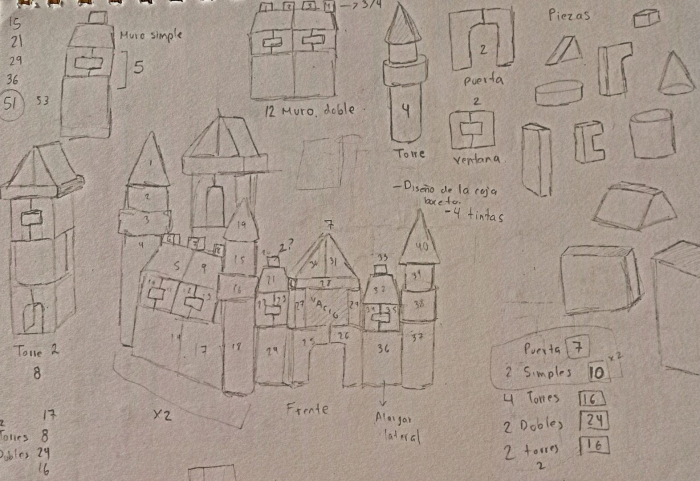 15
21
29
36
51
53
Muro simple
5
→ 3/4
12 Muro doble
4
Torre
2
Puerta
2
Ventana
Piezas
- Diseño de la caja
boceto
- 4 tintas
Torre 2
8
1
2
3
4
5
9
14
17
x2
19
15
16
18
2?
21
24
7
30
31
28
27
Vacio
29
25
26
Frente
33
36
Alargar
lateral
40
39
38
37
Puerta 7
2 Simples 10 x2
4 Torres 16
2 Dobles 24
2 torres 16
2
17
Torres 8
Dobles 24
16